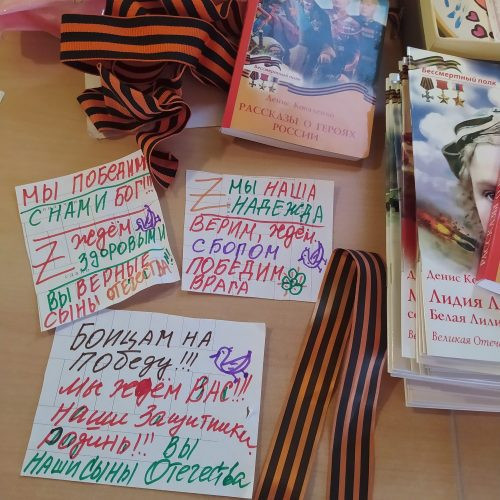 Бессмертный полк
Денис Коваленко
РАССКАЗЫ О ГЕРОЯХ
РОССИИ
Бессмертный полк
Денис Ко
Лидия Л
Белая Лили
Великая Отече
МЫ ПОБЕДИМ
С НАМИ БОГ!!!
Z ждём
здоровыми
ВЫ ВЕРНЫЕ
СЫНЫ ОТЕЧЕСТВА!!
Z МЫ НАША
НАДЕЖДА
ВЕРИМ, ждём,
С БОГОМ
ПОБЕДИМ
ВРАГА
БОЙЦАМ НА
ПОБЕДУ!!!
Мы ждём ВАС!!!
Наши Защитники
Родины!!! ВЫ
НАШИ СЫНЫ Отечества